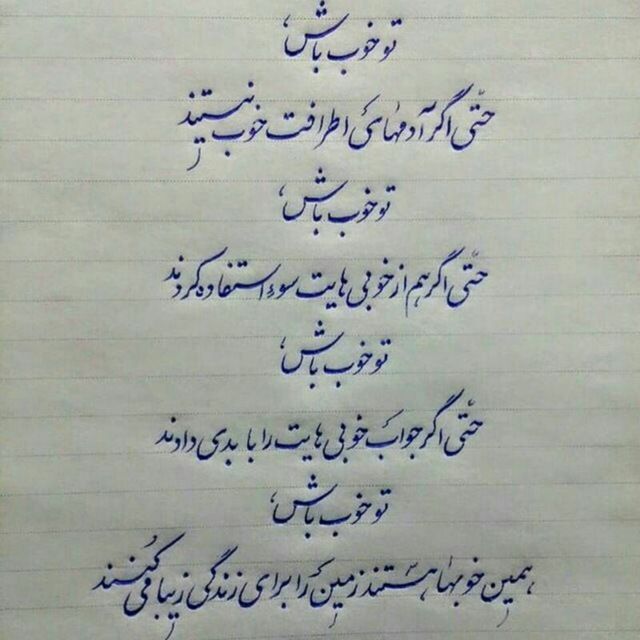 تو خوب باش،
حتّی اگر آدمهای اطرافت خوب نیستند
تو خوب باش،
حتّی اگر هم از خوبی هایت سوءاستفاده کردند
تو خوب باش،
حتّی اگر جواب خوبی هایت را با بدی دادند
تو خوب باش،
همین خوبها هستند زمین را برای زندگی زیبا می کُنند